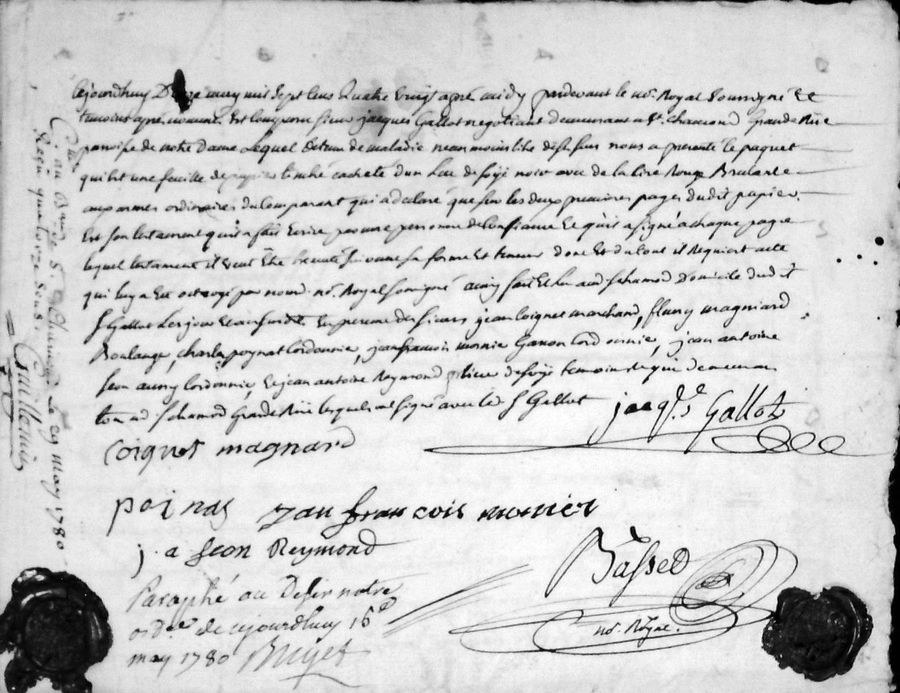 Cejourdhuy Douze may mil sept cens Quatre vingt apré midy pardevant le no.^re Royal soussigné Et
temoins apré nommé, Est comparu sieur jacques Gallot negotiant demeurant a S.^t chamond grande Rüe
paroisse de notre Dame Lequel detenu de maladie neanmoins libre de ses sens nous a presenté le paquet
qui est une feuille de papier timbré cacheté d'un lac de soÿe noir avec de la cire Rouge Brulante
aux armes ordinaires du Comparant qui a declaré que sur les deux premieres pages du dit papier
Est son testament qu'il a fait Ecrire par une personne de confiance Et qu'il a signé a chaque page
lequel testament il veut Etre Executé suivant sa forme Et teneur dont Et du tout il Requiert acte
qui luy a Eté octroyé par nous d. no.^re Royal soussigné ainsy fait Et Lu aud s.^t chamond Domicile du dit
s.^r Gallot Les jour Et an susdits En presence des sieurs jean Coignet marchand, fleury magniard
Boulanger, charles poynat Cordonnier, jean francois monier Garçon Cordonnier, jean antoine
jean aussy Cordonnier, Et jean antoine Reymond plieur de soÿe temoins Requis demeurant
tous aud s.^t chamond Grande Rüe lesquels ont signé avec led. s.^r Gallot
jacq.^s Gallot
Coignet magnard
poinas jan francois monier
j. a jean Reymond
Basset
no.^re Royal.
Paraphé au Desir notre
ord.^ce de cejourdhuy 16.^e
may 1780 Bruyas
C.^lé au B.^au de S.^t Chamond Le 29 may 1780.
Reçu quatorze sous.
Guillemin